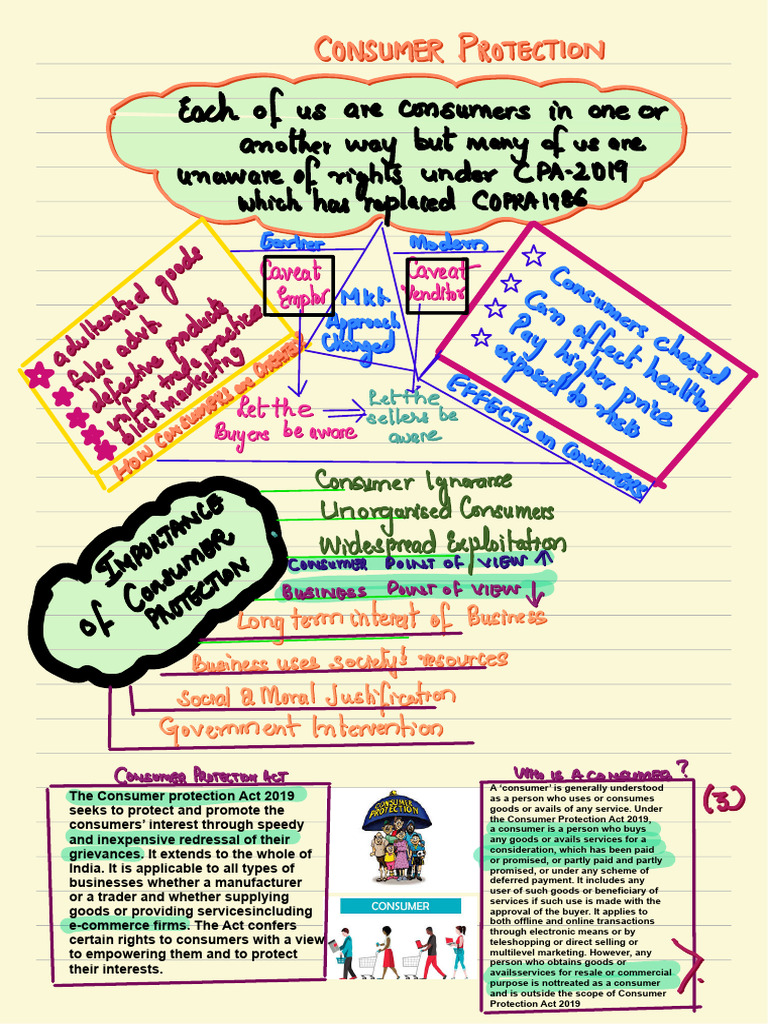 CONSUMER PROTECTION
Each of us are consumers in one or
another way but many of us are
unaware of rights under CPA-2019
which has replaced COPRA 1986
Earlier
Modern
Caveat
Emptor
Caveat
Venditor
Mkt
Approach
Changed
adulterated goods
false advt.
defective products
unfair trade practices
black marketing
HOW CONSUMERS are cheated?
Consumers cheated
Can affect health
Pay higher price
exposed to risks
EFFECTS on CONSUMERS
Let the
Buyers be aware
Let the
sellers be
aware
IMPORTANCE
of CONSUMER
PROTECTION
Consumer Ignorance
Unorganised Consumers
Widespread Exploitation
CONSUMER POINT OF VIEW ↑
BUSINESS POINT OF VIEW ↓
Long term interest of Business
Business uses society's resources
Social & Moral Justification
Government Intervention
CONSUMER PROTECTION ACT
The Consumer protection Act 2019
seeks to protect and promote the
consumers' interest through speedy
and inexpensive redressal of their
grievances. It extends to the whole of
India. It is applicable to all types of
businesses whether a manufacturer
or a trader and whether supplying
goods or providing servicesincluding
e-commerce firms. The Act confers
certain rights to consumers with a view
to empowering them and to protect
their interests.
CONSUMER
PROTECTION
CONSUMER
WHO IS A CONSUMER?
A 'consumer' is generally understood
as a person who uses or consumes
goods or avails of any service. Under
the Consumer Protection Act 2019,
a consumer is a person who buys
any goods or avails services for a
consideration, which has been paid
or promised, or partly paid and partly
promised, or under any scheme of
deferred payment. It includes any
user of such goods or beneficiary of
services if such use is made with the
approval of the buyer. It applies to
both offline and online transactions
through electronic means or by
teleshopping or direct selling or
multilevel marketing. However, any
person who obtains goods or
availsservices for resale or commercial
purpose is nottreated as a consumer
and is outside the scope of Consumer
Protection Act 2019
(3)